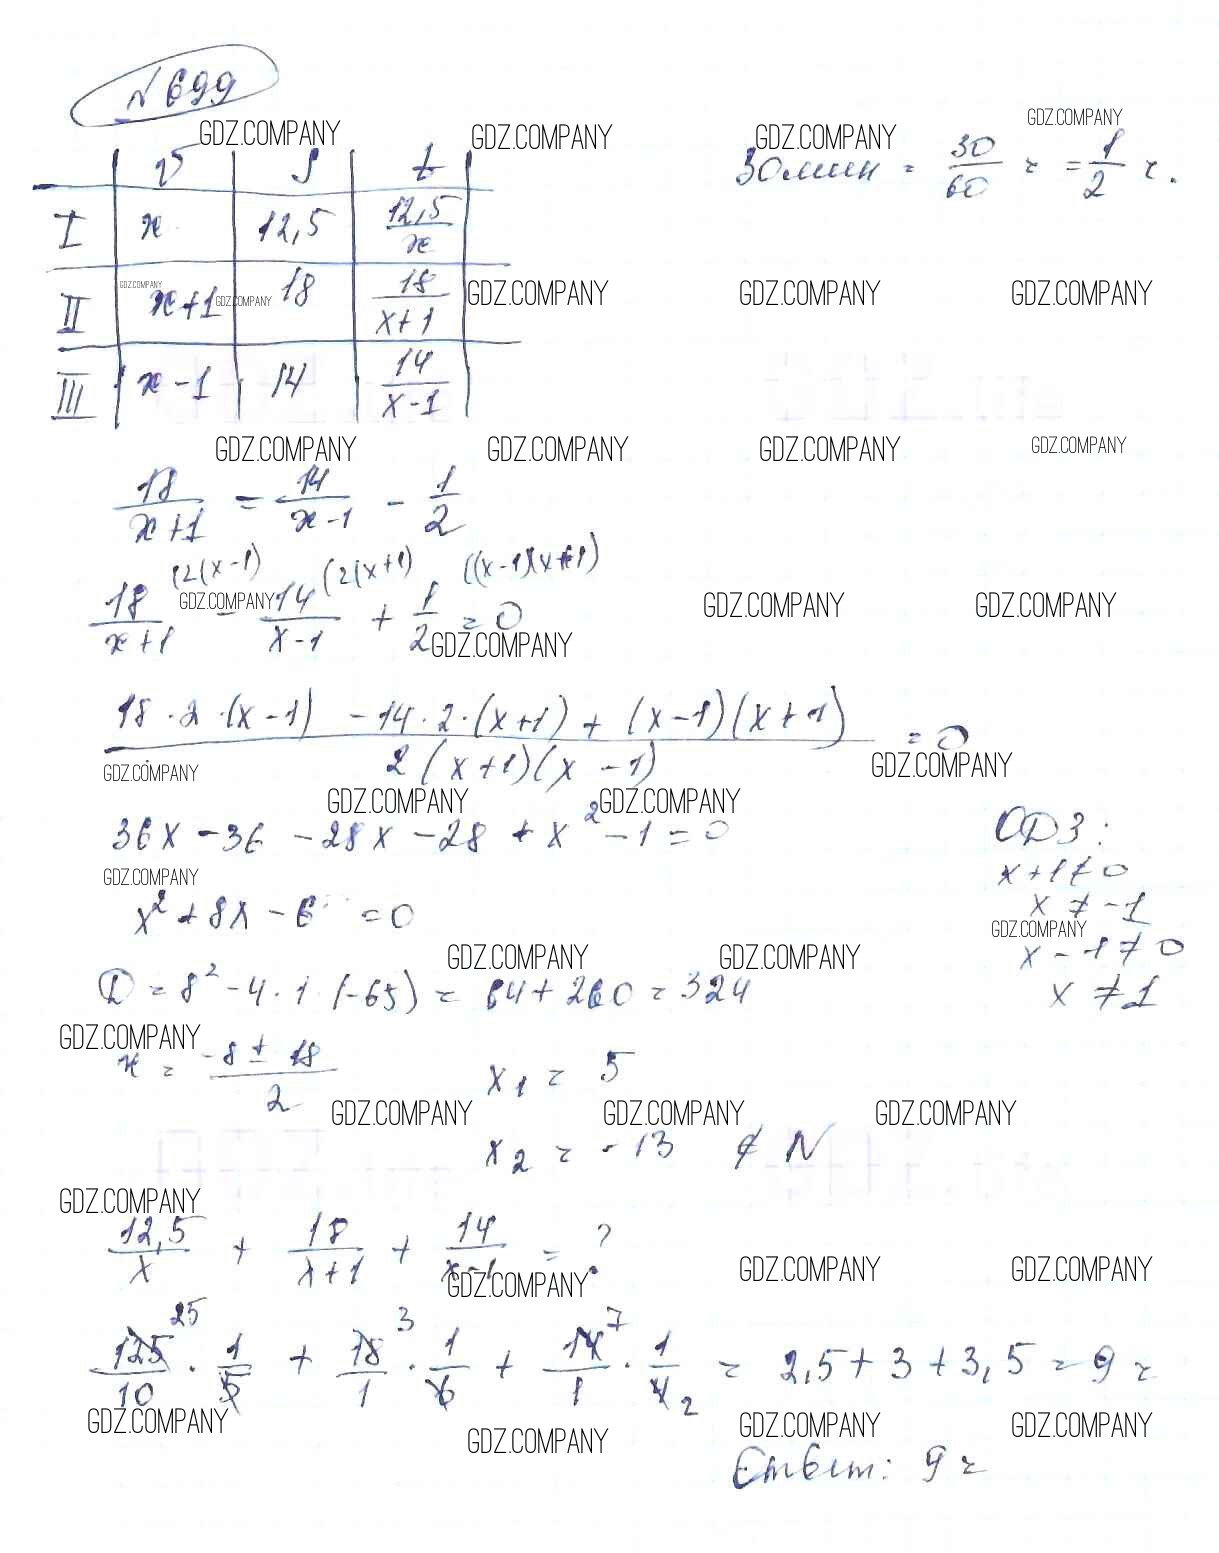 № 699
GDZ.COMPANY GDZ.COMPANY GDZ.COMPANY GDZ.COMPANY
v S t
30 мин = 30/60 ч = 1/2 ч.
I x 12,5 12,5/x
II x+1 18 18/(x+1)
GDZ.COMPANY GDZ.COMPANY GDZ.COMPANY GDZ.COMPANY GDZ.COMPANY
III x-1 14 14/(x-1)
GDZ.COMPANY GDZ.COMPANY GDZ.COMPANY GDZ.COMPANY
18/(x+1) = 14/(x-1) - 1/2
(2(x-1) (2(x+1) ((x-1)(x+1)
18/(x+1) - 14/(x-1) + 1/2 = 0
GDZ.COMPANY GDZ.COMPANY GDZ.COMPANY
GDZ.COMPANY
18·2·(x-1) -14·2·(x+1) + (x-1)(x+1) / 2(x+1)(x-1) = 0
GDZ.COMPANY GDZ.COMPANY
GDZ.COMPANY GDZ.COMPANY
36x - 36 - 28x - 28 + x² - 1 = 0
ОДЗ:
x+1≠0
GDZ.COMPANY
x ≠ -1
x² + 8x - 6 = 0
GDZ.COMPANY
x - 1 ≠ 0
GDZ.COMPANY GDZ.COMPANY
D = 8² - 4·1·(-65) = 64 + 260 = 324
x ≠ 1
GDZ.COMPANY
x = (-8 ± 18)/2 x₁ = 5
GDZ.COMPANY GDZ.COMPANY GDZ.COMPANY
x₂ = -13 ∉ N
GDZ.COMPANY
12,5/x + 18/(x+1) + 14/(x-1) = ?
GDZ.COMPANY GDZ.COMPANY GDZ.COMPANY
25 3 7
125/10 · 1/5 + 18/1 · 1/6 + 14/1 · 1/4 2 = 2,5 + 3 + 3,5 = 9 ч
GDZ.COMPANY GDZ.COMPANY GDZ.COMPANY GDZ.COMPANY
Ответ: 9 ч